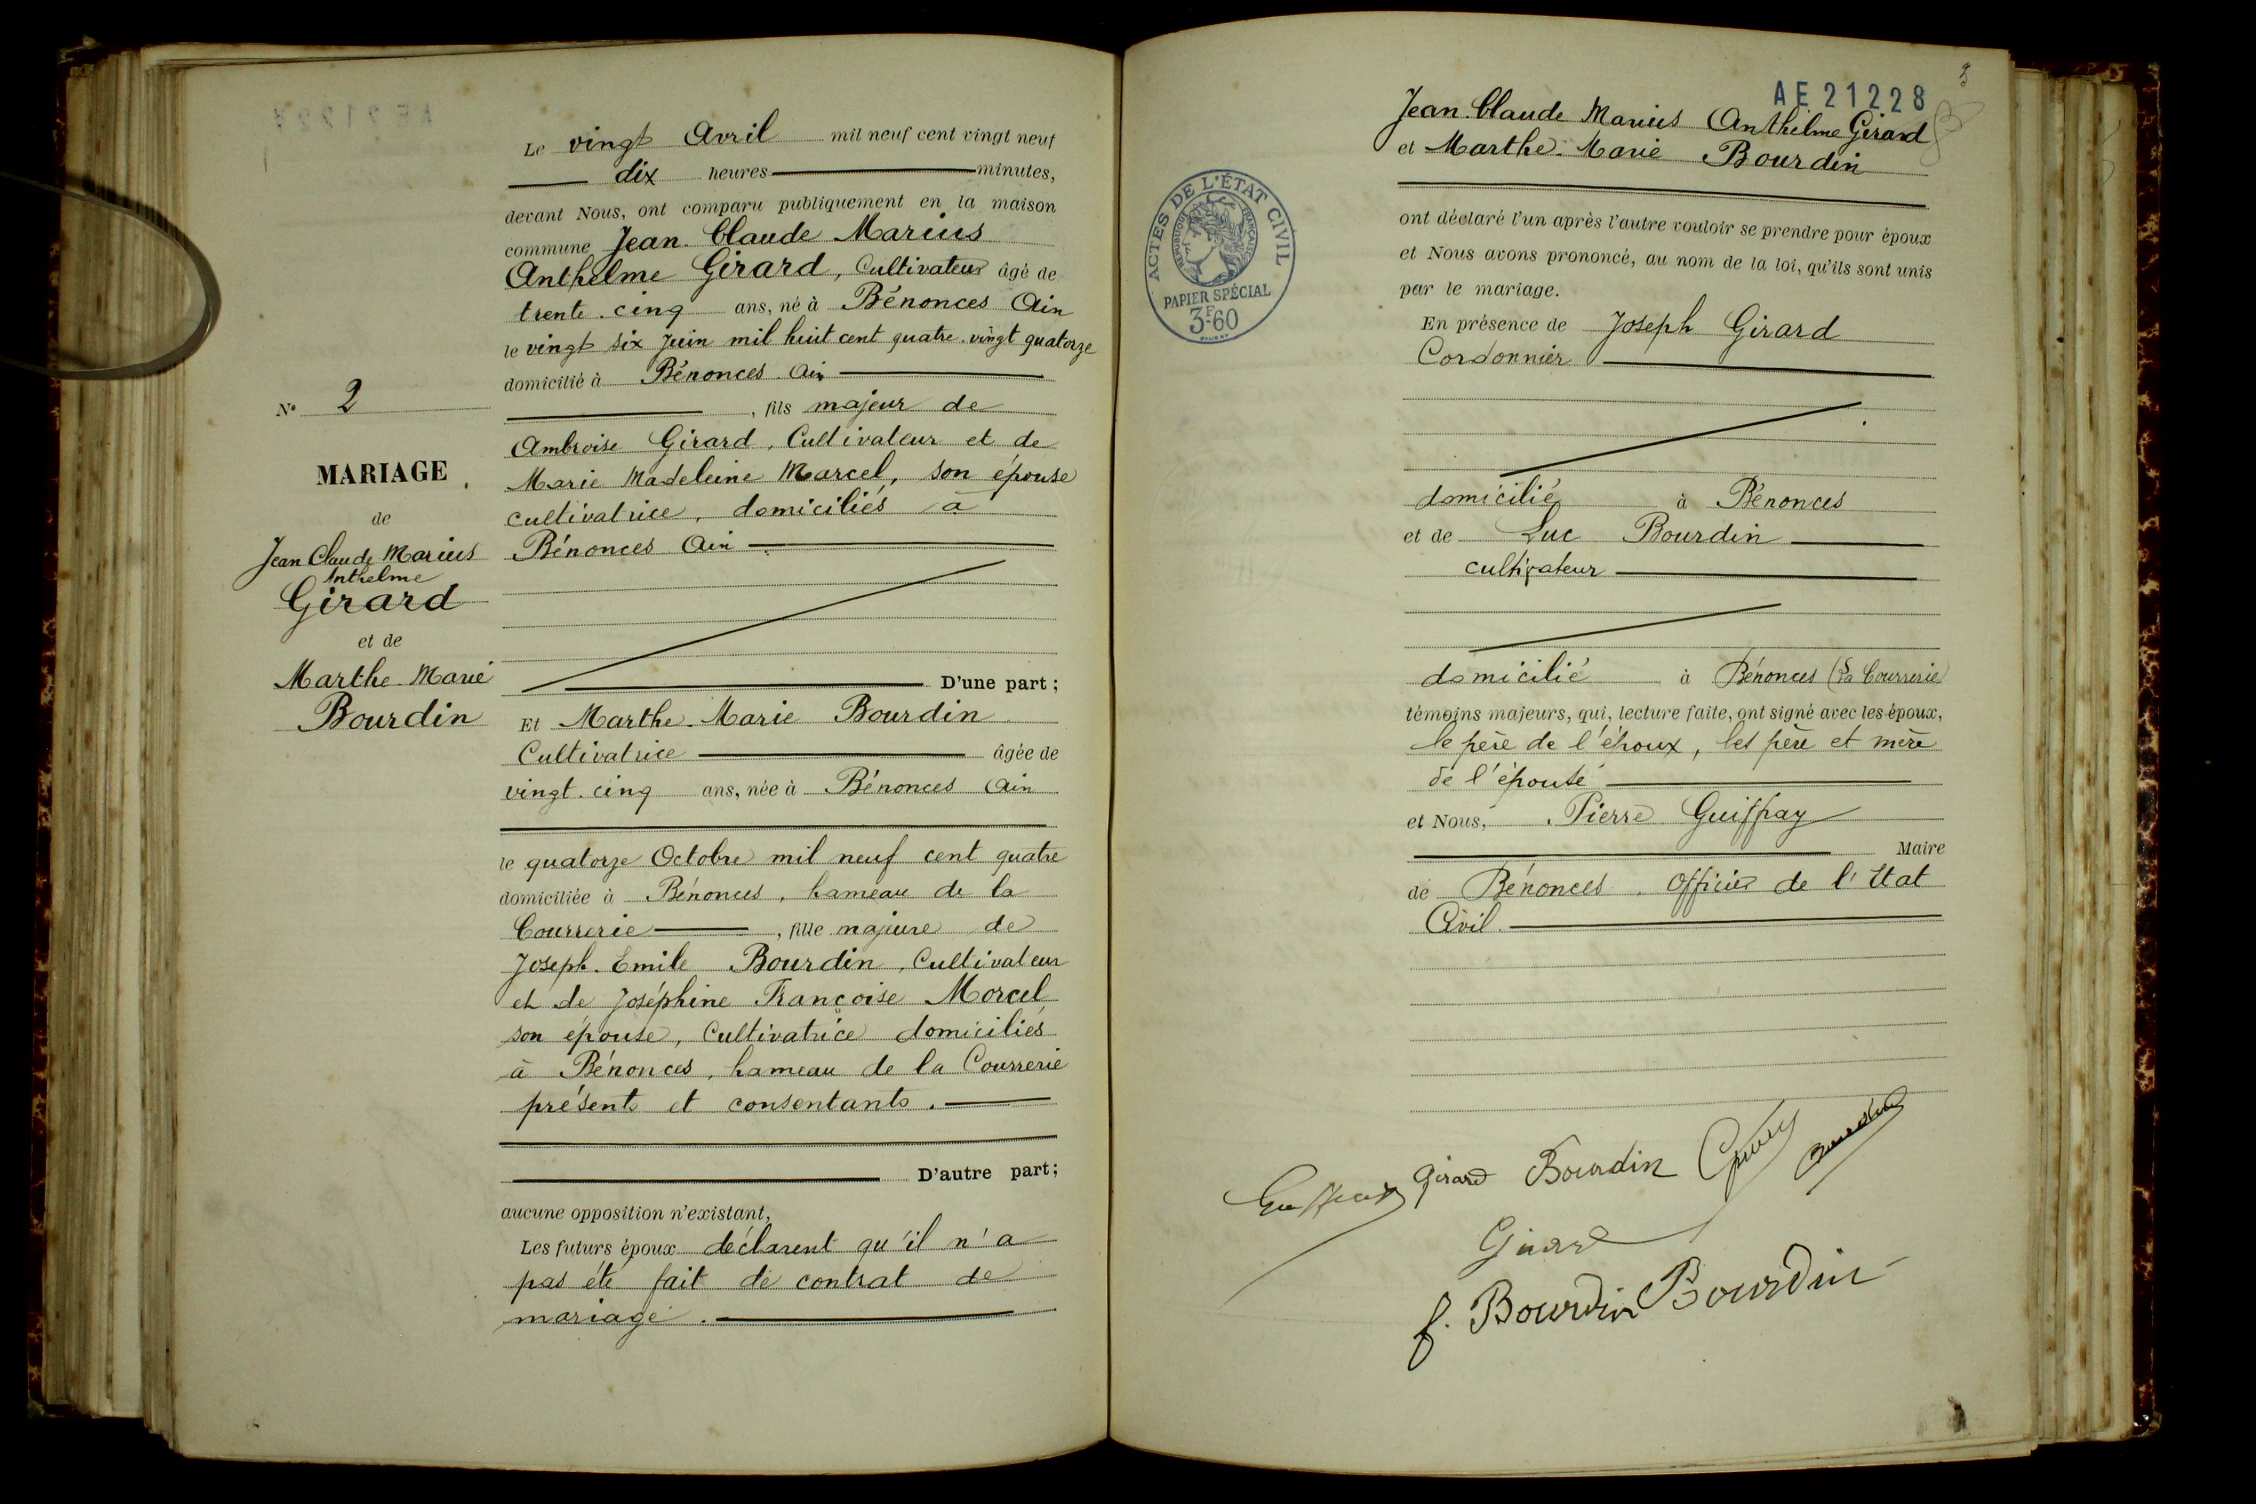 Le vingt Avril mil neuf cent vingt neuf
dix heures minutes,
devant Nous, ont comparu publiquement en la maison
commune Jean Claude Marius
Anthelme Girard, Cultivateur âgé de
trente cinq ans, né à Bénonces Ain
le vingt six Juin mil huit cent quatre vingt quatorze
domicilié à Bénonces Ain
, fils majeur de
Ambroise Girard, Cultivateur et de
Marie Madeleine Marcel, son épouse
cultivatrice, domiciliés à
Bénonces Ain
D'une part;
N° 2
MARIAGE
de
Jean Claude Marius
Anthelme
Girard
et de
Marthe Marie
Bourdin
Et Marthe Marie Bourdin
Cultivatrice âgée de
vingt cinq ans, née à Bénonces Ain
le quatorze Octobre mil neuf cent quatre
domiciliée à Bénonces, hameau de la
Courrerie, fille majeure de
Joseph Emile Bourdin, Cultivateur
et de Joséphine Françoise Morcel
son épouse, Cultivatrice domiciliés
à Bénonces, hameau de la Courrerie
présents et consentants.
D'autre part;
aucune opposition n'existant,
Les futurs époux déclarent qu'il n'a
pas été fait de contrat de
mariage.
AE 21228
Jean Claude Marius Anthelme Girard
et Marthe Marie Bourdin
ACTES DE L'ÉTAT CIVIL
RÉPUBLIQUE FRANÇAISE
PAPIER SPÉCIAL
3F60
ont déclaré l'un après l'autre vouloir se prendre pour époux
et Nous avons prononcé, au nom de la loi, qu'ils sont unis
par le mariage.
En présence de Joseph Girard
Cordonnier
domicilié à Bénonces
et de Luc Bourdin
cultivateur
domicilié à Bénonces (La Courrerie
témoins majeurs, qui, lecture faite, ont signé avec les époux,
le père de l'époux, les père et mère
de l'épouse
et Nous, Pierre Guiffray
Maire
de Bénonces. Officier de l'Etat
Civil.
Girard Bourdin
Girard
f. Bourdin Bourdin